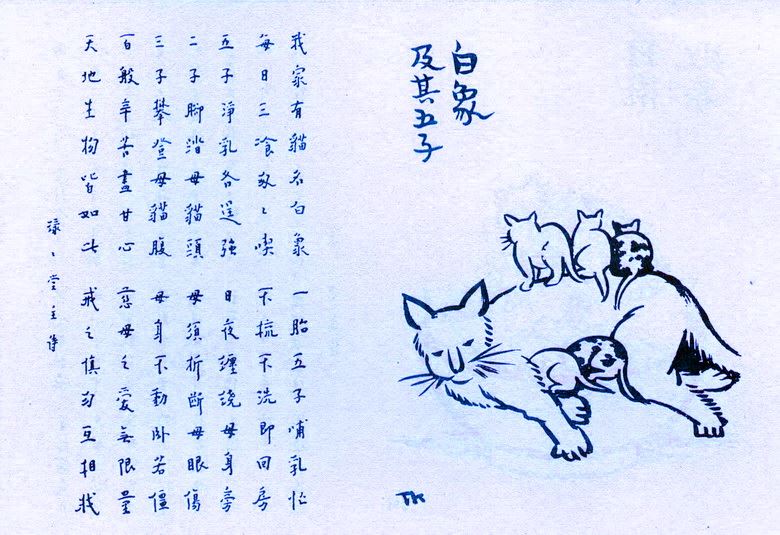 白象
及其五子
我家有貓名白象 一胎五子哺乳忙
每日三飡匆〻喫 不梳不洗即回房
五子淨乳各逞強 日夜纏繞母身旁
二子腳踏母貓頭 母須折斷母眼傷
三子攀登母貓腹 母身不動臥若僵
百般辛苦盡甘心 慈母之愛無限量
天地生物皆如此 戒之慎勿互相戕
緣〻堂主詩
TK